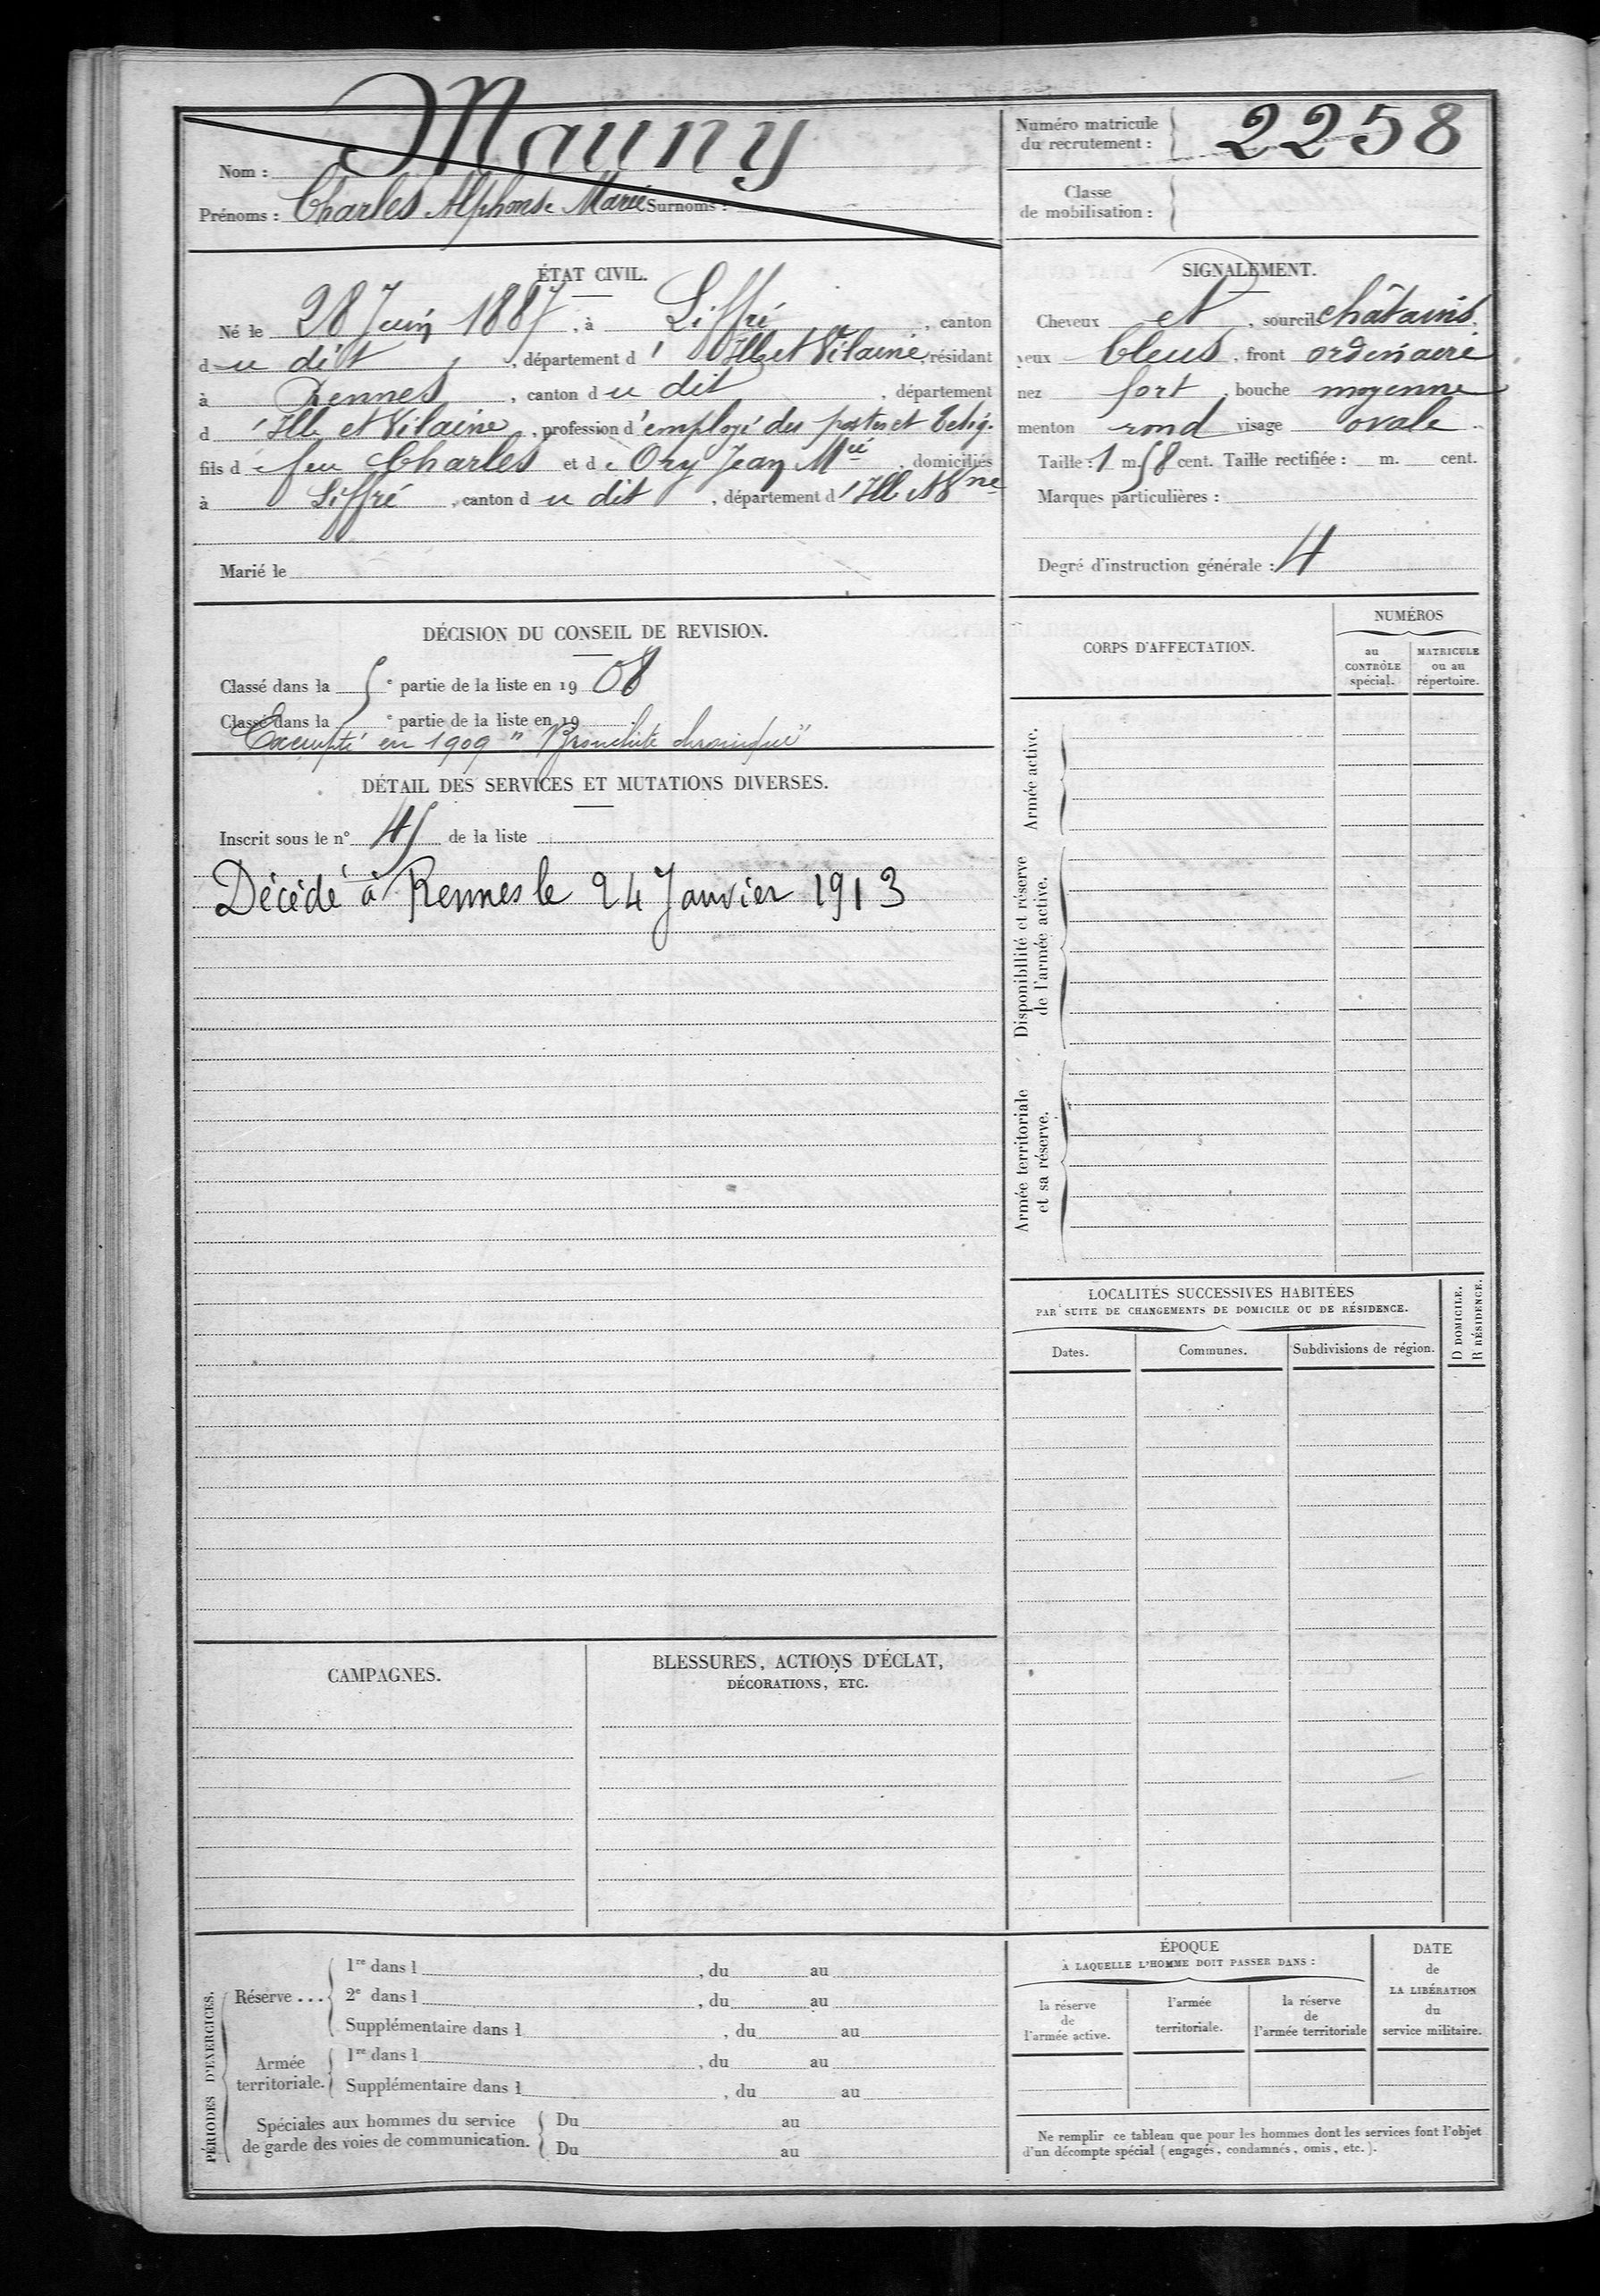 Nom : Mauny
Prénoms : Charles Alphonse Marie Surnoms :
Numéro matricule
du recrutement : 2258
Classe
de mobilisation :
ÉTAT CIVIL.
Né le 28 Juin 1887, à Liffré, canton
du dit, département d'Ille et Vilaine, résidant
à Rennes, canton du dit, département
d'Ille et Vilaine, profession d'employé des postes et télég.
fils de feu Charles et de Ory Jean Mie domiciliés
à Liffré, canton du dit, département d'Ille et Vne
Marié le
SIGNALEMENT.
Cheveux et, sourcils châtains,
yeux bleus, front ordinaire
nez fort, bouche moyenne
menton rond visage ovale.
Taille : 1 m. 58 cent. Taille rectifiée : m. cent.
Marques particulières :
Degré d'instruction générale : 4
DÉCISION DU CONSEIL DE REVISION.
Classé dans la 5e partie de la liste en 1908
Classé dans la e partie de la liste en 19
Exempté en 1909 "Bronchite chronique"
DÉTAIL DES SERVICES ET MUTATIONS DIVERSES.
Inscrit sous le n° 45 de la liste
Décédé à Rennes le 24 Janvier 1913
CORPS D'AFFECTATION.
NUMÉROS
au
CONTRÔLE
spécial.
MATRICULE
ou au
répertoire.
Armée active.
Disponibilité et réserve
de l'armée active.
Armée territoriale
et sa réserve.
LOCALITÉS SUCCESSIVES HABITÉES
PAR SUITE DE CHANGEMENTS DE DOMICILE OU DE RÉSIDENCE.
D DOMICILE.
R RÉSIDENCE.
Dates. Communes. Subdivisions de région.
CAMPAGNES.
BLESSURES, ACTIONS D'ÉCLAT,
DÉCORATIONS, ETC.
PÉRIODES D'EXERCICES.
Réserve ...
1re dans l , du au
2e dans l , du au
Supplémentaire dans l , du au
Armée
territoriale.
1re dans l , du au
Supplémentaire dans l , du au
Spéciales aux hommes du service
de garde des voies de communication.
Du au
Du au
ÉPOQUE
À LAQUELLE L'HOMME DOIT PASSER DANS :
la réserve
de
l'armée active.
l'armée
territoriale.
la réserve
de
l'armée territoriale
DATE
de
LA LIBÉRATION
du
service militaire.
Ne remplir ce tableau que pour les hommes dont les services font l'objet
d'un décompte spécial (engagés, condamnés, omis, etc.).